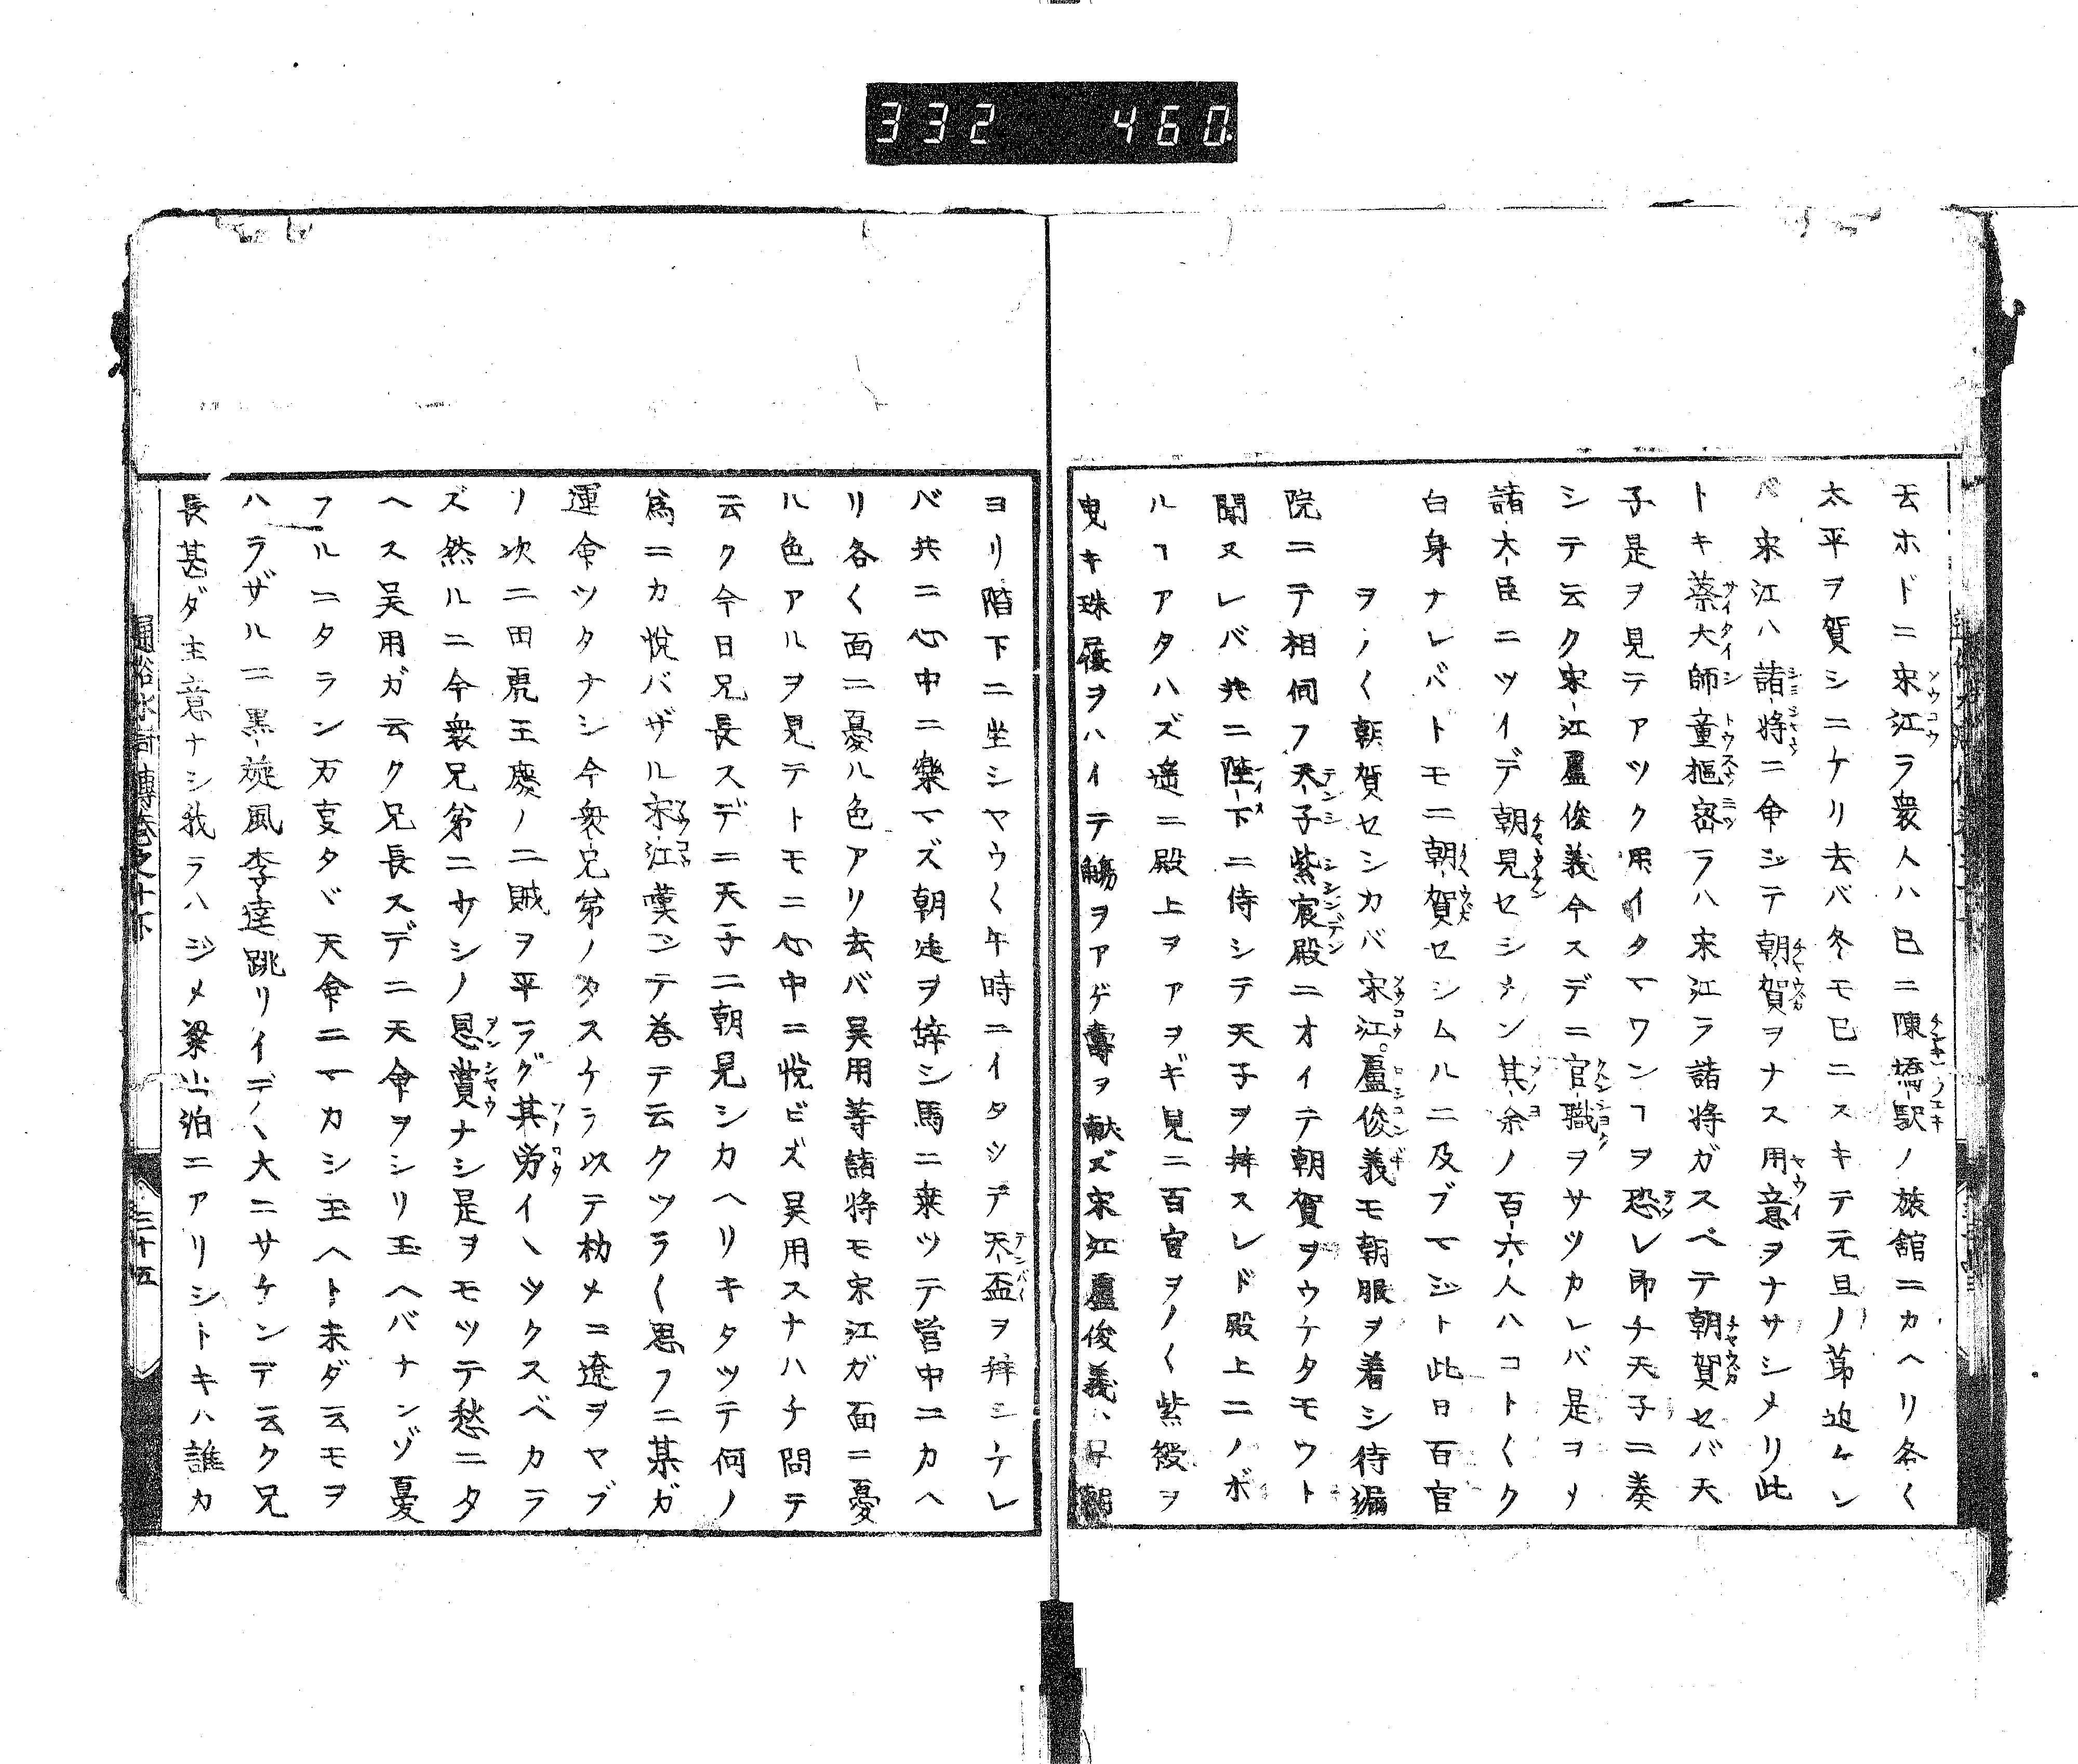 332 460
云ホドニ宋江ラ衆人ハ已ニ陳橋駅ノ旅館ニカヘリ各〱
太平ヲ賀シニケリ去バ冬モ已ニスキテ元旦ノ莭迫ケン
バ宋江ハ諸将ニ命ジテ朝賀ヲナス用意ヲナサシメリ此
トキ蔡大師童樞密ラハ宋江ラ諸将ガスベテ朝賀セバ天
子是ヲ見テアツク用イタマワンヿヲ恐レ即チ天子ニ奏
シテ云ク宋江盧俊義今スデニ官職ヲサツカレバ是ヲメ
諸大臣ニツイデ朝見セシメン其余ノ百六人ハコト〱ク
白身ナレバトモニ朝賀セシムルニ及ブマジト此日百官
ヲノ〱朝賀セシカバ宋江。盧俊義モ朝服ヲ着シ待漏
院ニテ相伺フ天子紫宸殿ニオイテ朝賀ヲウケタモウト
聞ヌレバ共ニ陛下ニ侍シテ天子ヲ拜スレド殿上ニノボ
ルヿアタハズ遙ニ殿上ヲアヲギ見ニ百官ヲノ〱紫綬ヲ
曳キ珠履ヲハイテ觴ヲアゲ壽ヲ献ズ宋江盧俊義ハ早朝
ヨリ階下ニ坐シヤウ〱午時ニイタツテ天盃ヲ拜シケレ
バ共ニ心中ニ樂マズ朝廷ヲ辞シ馬ニ乗ツテ営中ニカヘ
リ各〱面ニ憂ル色アリ去バ呉用等諸将モ宋江ガ面ニ憂
ル色アルヲ見テトモニ心中ニ悦ビズ呉用スナハチ問テ
云ク今日兄長スデニ天子ニ朝見シカヘリキタツテ何ノ
爲ニカ悦バザル宋江嘆ジテ荅テ云クツラ〱思フニ某ガ
運命ツタナシ今衆兄弟ノタスケラ以テ初メニ遼ヲヤブ
ノ次ニ田虎王慶ノ二賊ヲ平ラグ其労イヽツクスベカラ
ズ然ルニ今衆兄弟ニサシノ恩賞ナシ是ヲモツテ愁ニタ
ヘス呉用ガ云ク兄長スデニ天命ヲシリ玉ヘバナンゾ憂
フルニタラン万叓タヾ天命ニマカシ玉ヘト未ダ云モヲ
ハラザルニ黒旋風李逵跳リイデヽ大ニサケンデ云ク兄
長甚ダ主意ナシ我ラハジメ梁山泊ニアリシトキハ誰カ
通俗水滸傳卷之十下
三十五